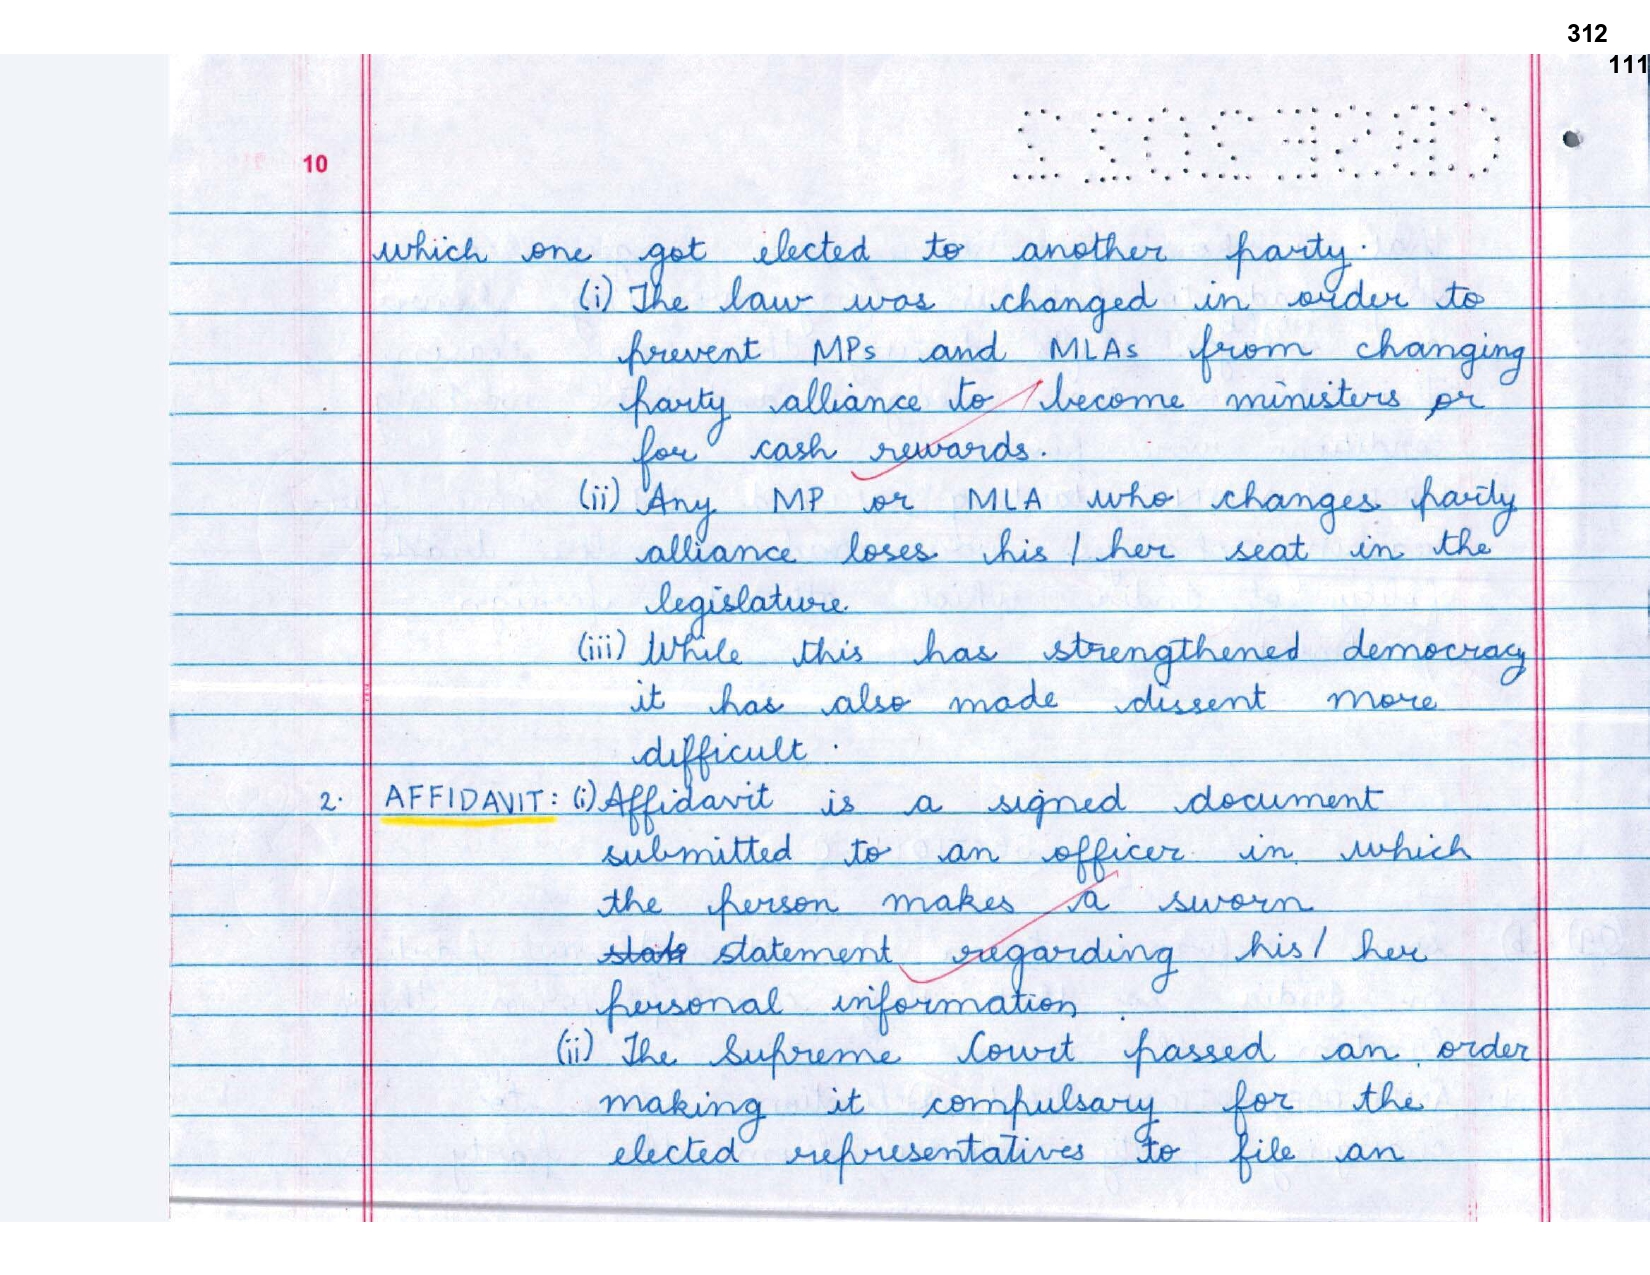 312
111
CBSE2022
10
which one got elected to another party.
(i) The law was changed in order to
prevent MPs and MLAs from changing
party alliance to become ministers or
for cash rewards.
(ii) Any MP or MLA who changes party
alliance loses his / her seat in the
legislature.
(iii) While this has strengthened democracy
it has also made dissent more
difficult.
2. AFFIDAVIT: (i) Affidavit is a signed document
submitted to an officer in which
the person makes a sworn
statement regarding his / her
personal information.
(ii) The Supreme Court passed an order
making it compulsary for the
elected representatives to file an